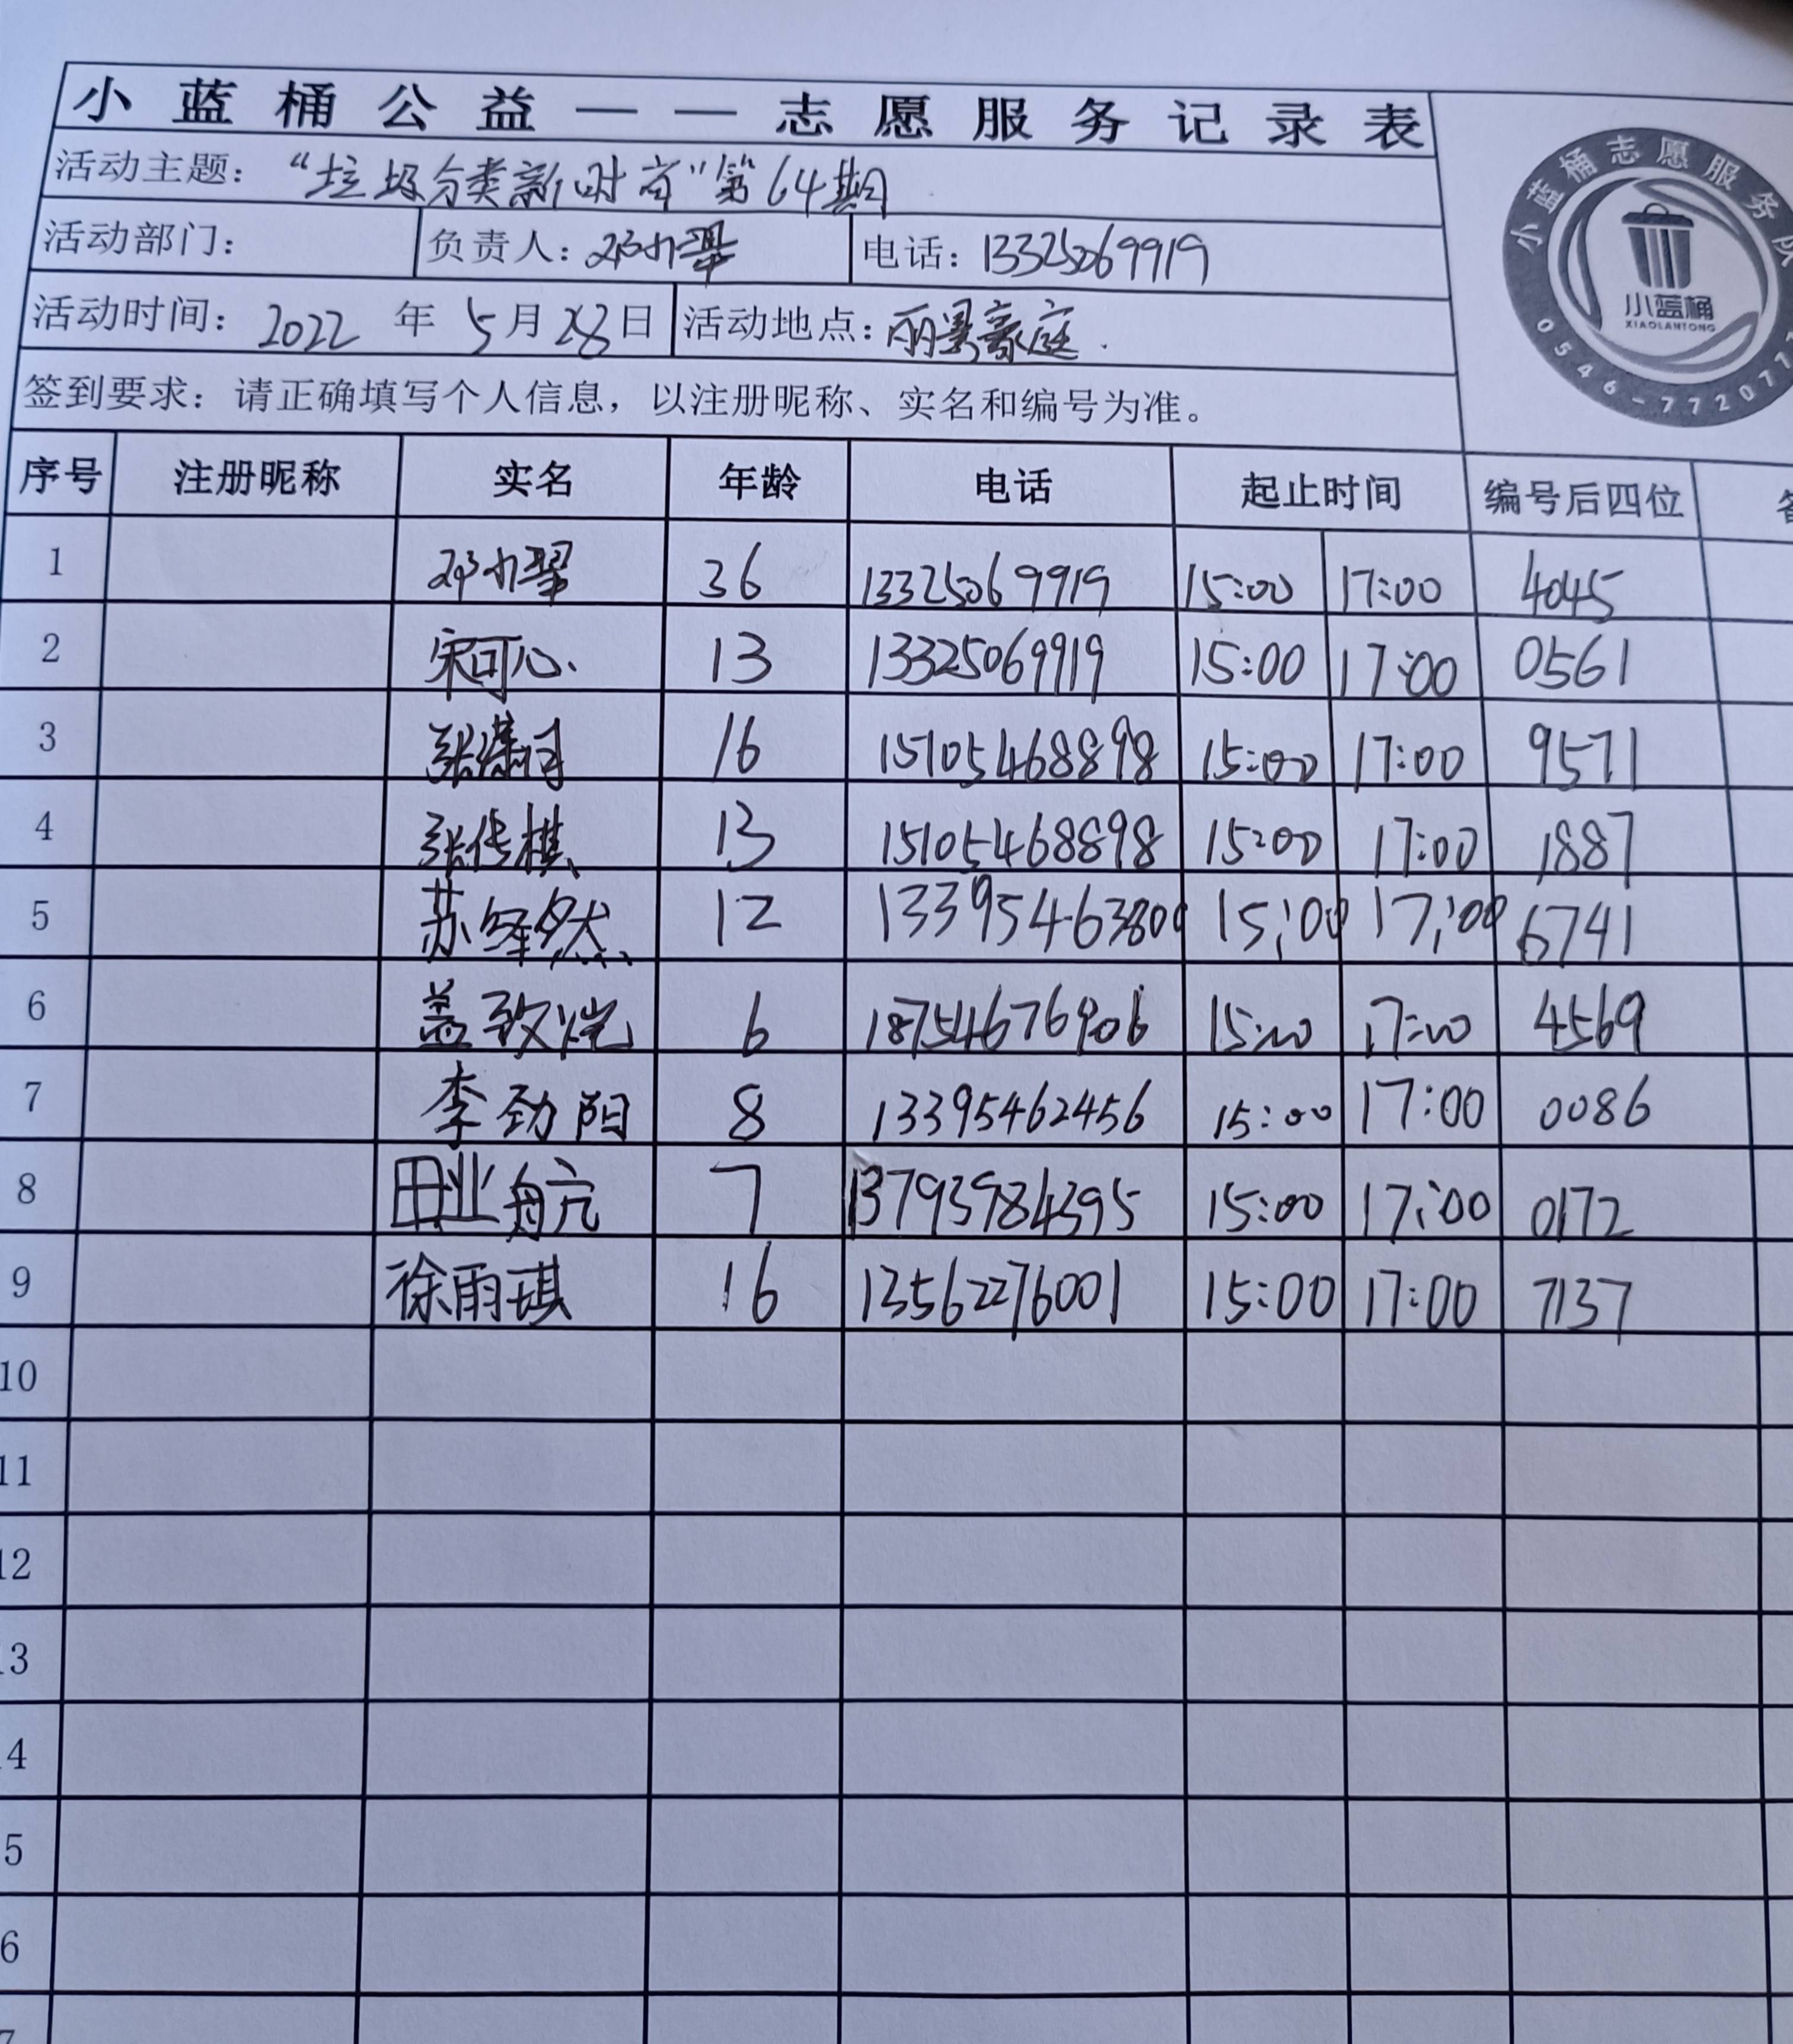 小蓝桶公益——志愿服务记录表
活动主题：“垃圾分类新时尚”第64期
活动部门： 负责人：邓小翠 电话：13325069919
活动时间：2022 年 5月 28日 活动地点：丽景豪庭.
签到要求：请正确填写个人信息，以注册昵称、实名和编号为准。
小蓝桶志愿服务队
小蓝桶
XIAOLANTONG
0546-772077
序号 注册昵称 实名 年龄 电话 起止时间 编号后四位
1 邓小翠 36 13325069919 15:00 17:00 4045
2 宋可心 13 13325069919 15:00 17:00 0561
3 张 16 15105468898 15:00 17:00 9571
4 张传棋 13 15105468898 15:00 17:00 1887
5 苏绎然 12 13395463800 15:00 17:00 6741
6 盖致恺 6 18754676906 15:00 17:00 4569
7 李劲阳 8 13395462456 15:00 17:00 0086
8 田业航 7 13793984395 15:00 17:00 0172
9 徐雨琪 16 13562276001 15:00 17:00 7137
10
11
12
13
14
5
6